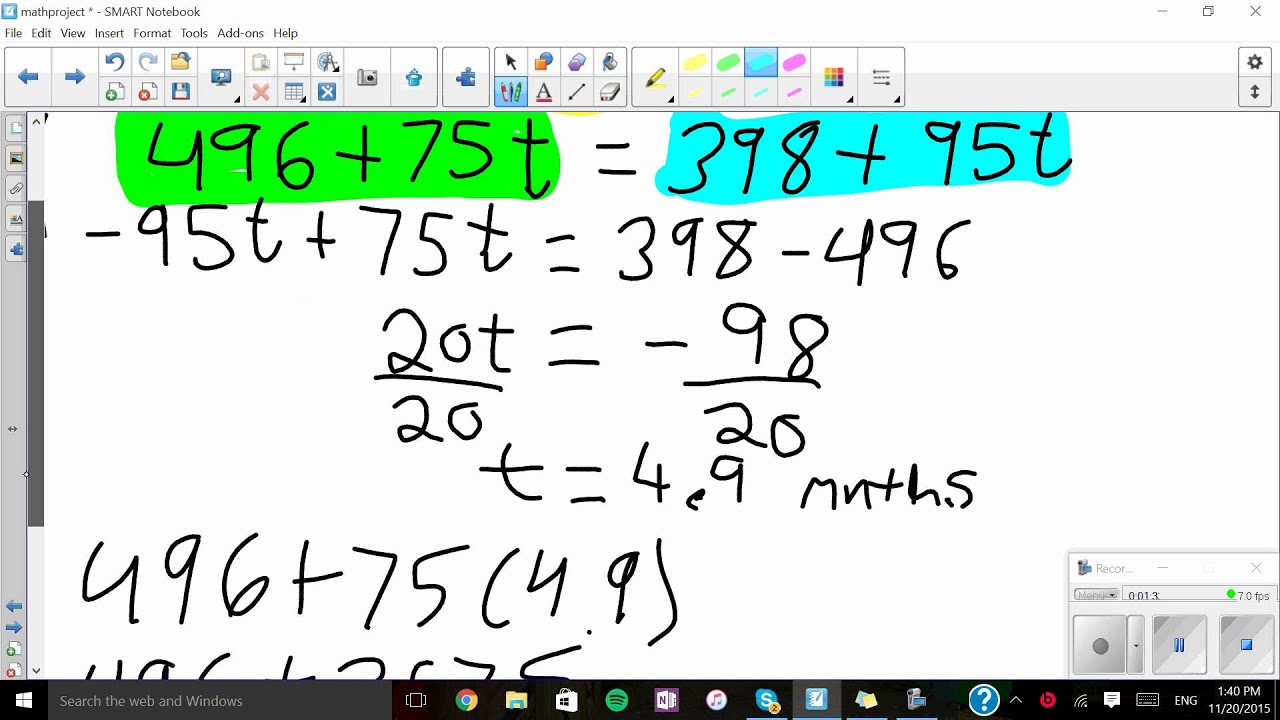 mathproject * - SMART Notebook
File Edit View Insert Format Tools Add-ons Help
496 + 75t = 398 + 95t
- 95t + 75t = 398 - 496
20t = - 98
20 20
t = 4.9 mnths
496 + 75 (4.9)
Recor...
Menu
0:01:3
7.0 fps
Search the web and Windows
ENG
1:40 PM
11/20/2015